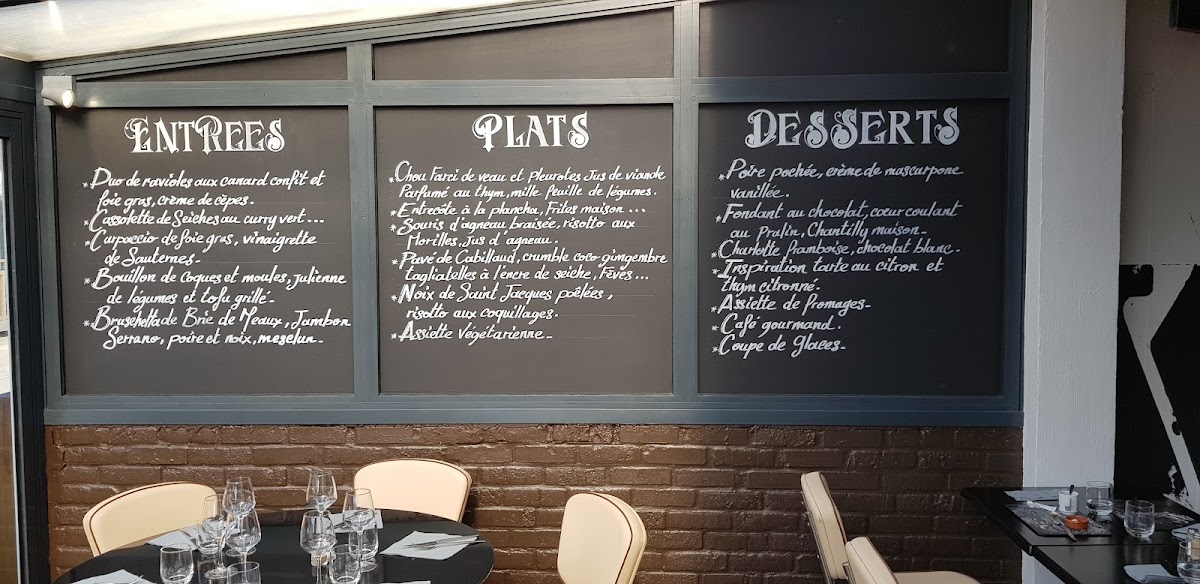 ENTREES
*Duo de ravioles aux canard confit et
foie gras, crème de cèpes-
*Cassolette de Seiches au curry vert...
*Carpaccio de foie gras, vinaigrette
de Sauternes-
*Bouillon de coques et moules, julienne
de légumes et tofu grillé-
*Bruschetta de Brie de Meaux, Jambon
Serrano, poire et noix, meselun-
PLATS
*Chou Farci de veau et Pleurotes Jus de viande
Parfumé au thym, mille feuille de légumes.
*Entrecôte à la plancha, Frites maison...
*Souris d'agneau braisée, risotto aux
Morilles, Jus d'agneau.
*Pavé de Cabillaud, crumble coco gingembre
tagliatelles à l'encre de seiche, Fèves...
*Noix de Saint Jacques poêlées,
risotto aux coquillages.
*Assiette Végétarienne-
DESSERTS
*Poire pochée, crème de mascarpone
vanillée.
*Fondant au chocolat, cœur coulant
au Pralin, Chantilly maison-
*Charlotte framboise, chocolat blanc.
*Inspiration tarte au citron et
thym citronné.
*Assiette de fromages-
*Café gourmand.
*Coupe de glaces-